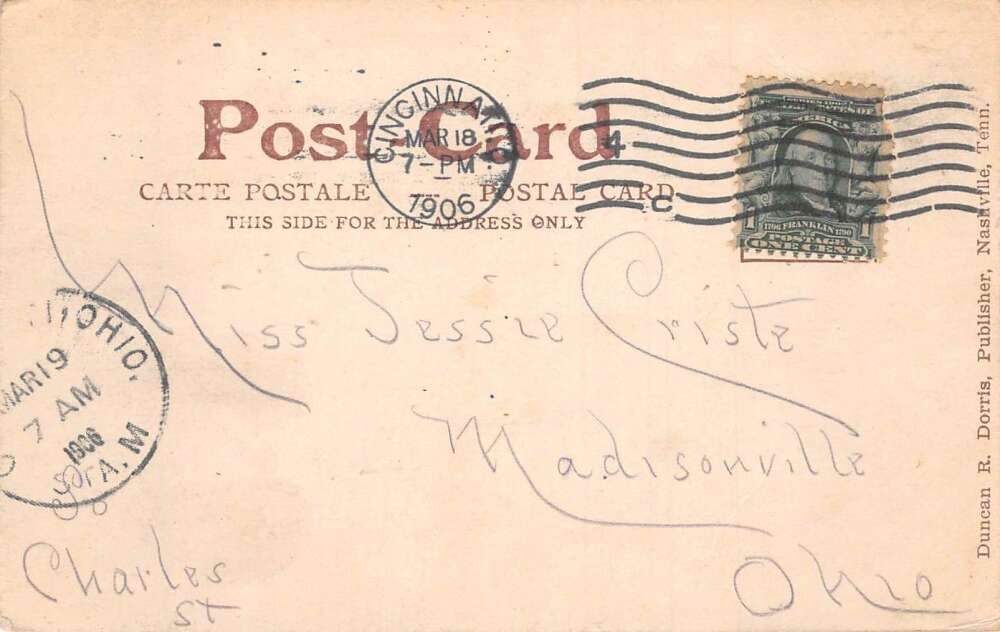 Post-Card
CARTE POSTALE — POSTAL CARD
THIS SIDE FOR THE ADDRESS ONLY
CINCINNATI, O
MAR 18
7-PM
1906
4
C
SERIES 1902
1706 FRANKLIN 1790
1 POSTAGE 1
ONE CENT
Duncan R. Dorris, Publisher, Nashville, Tenn.
Miss Jessie Criste
Madisonville
Ohio
OHIO.
MAR 19
7 AM
1906
A.M
Charles
St